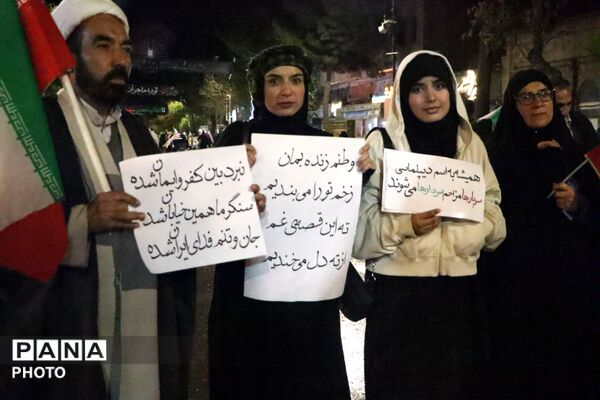 نبرد بین کفر و ایمان شده
سنگر ما همین خیابان شده
جان و تنم فدای ایران شده
وطنم زنده بمان
زخم تو را می‌بندیم
ته این قصه‌ی غم
از ته دل می‌خندیم
همیشه به اسم دیپلماسی
سربارها مزاحم سردارها می‌شوند
PANA
PHOTO